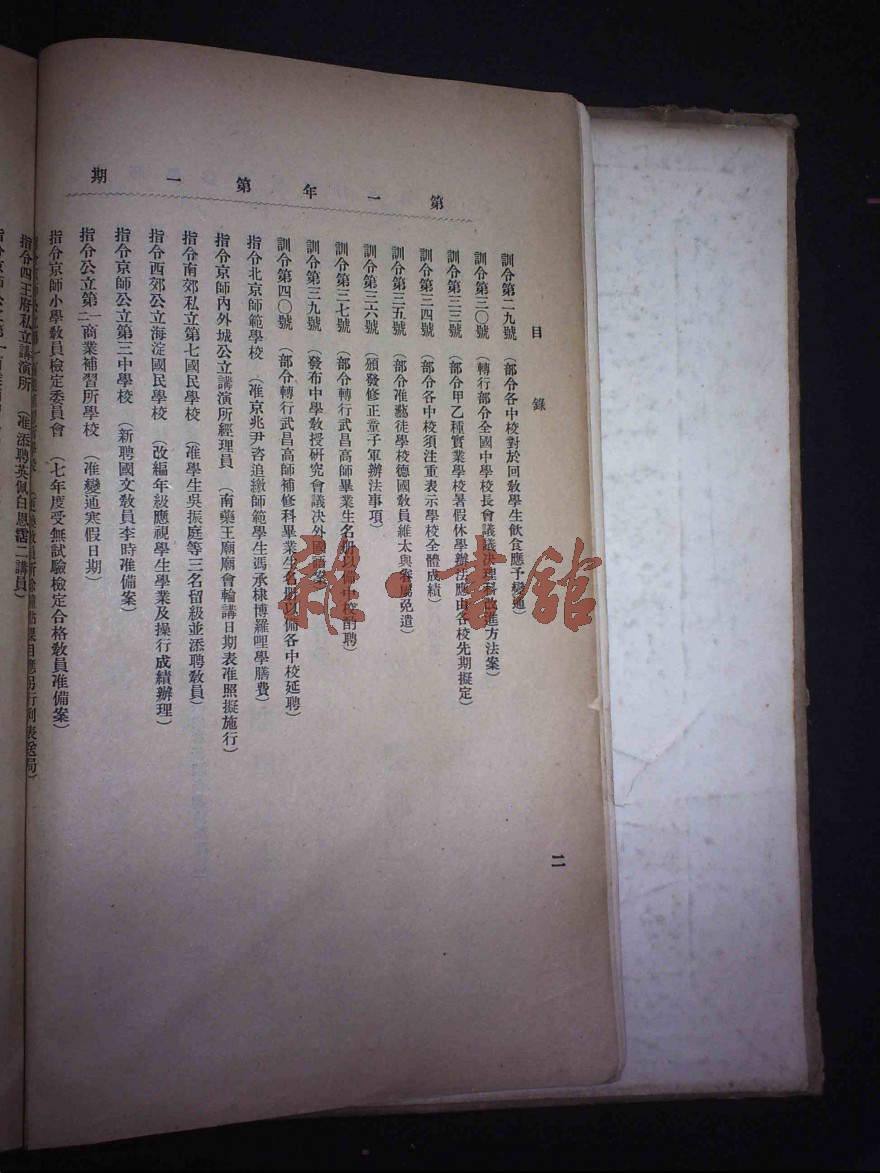 第一年第一期
目錄
二
訓令第二九號（部分各中校對於回敎學生飮食應予變通）
訓令第三〇號（轉行部分全國中學校長會議議決理科改進方法案）
訓令第三三號（部分甲乙種實業學校暑假休學辦法應由各校先期擬定）
訓令第三四號（部分各中校須注重表示學校全體成績）
訓令第三五號（部分准藝徒學校德國敎員維太與眷屬免遣）
訓令第三六號（頒發修正童子軍辦法事項）
訓令第三七號（部分轉行武昌高師畢業生名册以備中校酌聘）
訓令第三九號（發布中學敎授硏究會議決外國語案）
訓令第四〇號（部分轉行武昌高師補修科畢業生名册以備各中校延聘）
指令北京師範學校（准京兆尹咨追繳師範學生馮承棣博羅哩學膳費）
指令京師內外城公立講演所經理員（南藥王廟廟會輪講日期表准照擬施行）
指令南郊私立第七國民學校（准學生吳振庭等三名留級並添聘敎員）
指令西郊公立海淀國民學校（改編年級應視學生學業及操行成績辦理）
指令京師公立第三中學校（新聘國文敎員李時准備案）
指令公立第二商業補習所學校（准變通寒假日期）
指令京師小學敎員檢定委員會（七年度受無試驗檢定合格敎員准備案）
應另行列表送局）
指令四王府私立講演所（准添聘英佩白恩霑二講員）
指令京師公立第一
雜·書館